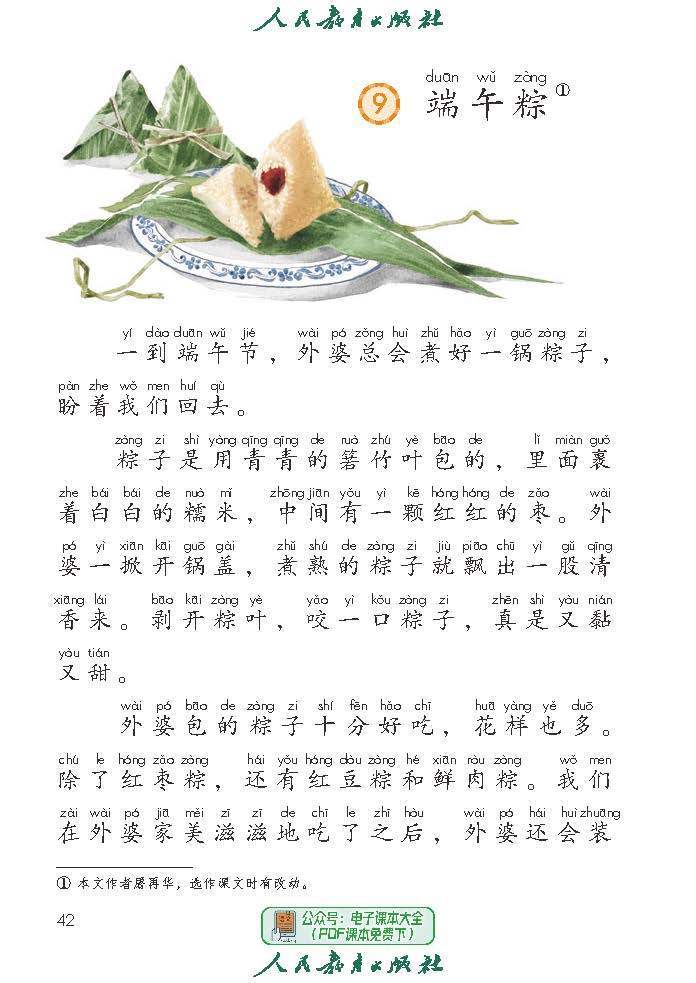 人民教育出版社
duān wǔ zòng
9 端午粽①
yí dào duān wǔ jié wài pó zǒng huì zhǔ hǎo yì guō zòng zi
一到端午节，外婆总会煮好一锅粽子，
pàn zhe wǒ men huí qù
盼着我们回去。
zòng zi shì yòng qīng qīng de ruò zhú yè bāo de lǐ miàn guǒ
粽子是用青青的箬竹叶包的，里面裹
zhe bái bái de nuò mǐ zhōng jiān yǒu yì kē hóng hóng de zǎo wài
着白白的糯米，中间有一颗红红的枣。外
pó yì xiān kāi guō gài zhǔ shú de zòng zi jiù piāo chū yì gǔ qīng
婆一掀开锅盖，煮熟的粽子就飘出一股清
xiāng lái bāo kāi zòng yè yǎo yì kǒu zòng zi zhēn shì yòu nián
香来。剥开粽叶，咬一口粽子，真是又黏
yòu tián
又甜。
wài pó bāo de zòng zi shí fēn hǎo chī huā yàng yě duō
外婆包的粽子十分好吃，花样也多。
chú le hóng zǎo zòng hái yǒu hóng dòu zòng hé xiān ròu zòng wǒ men
除了红枣粽，还有红豆粽和鲜肉粽。我们
zài wài pó jiā měi zī zī de chī le zhī hòu wài pó hái huì zhuāng
在外婆家美滋滋地吃了之后，外婆还会装
① 本文作者屠再华，选作课文时有改动。
42
公众号：电子课本大全
（PDF课本免费下）
人民教育出版社